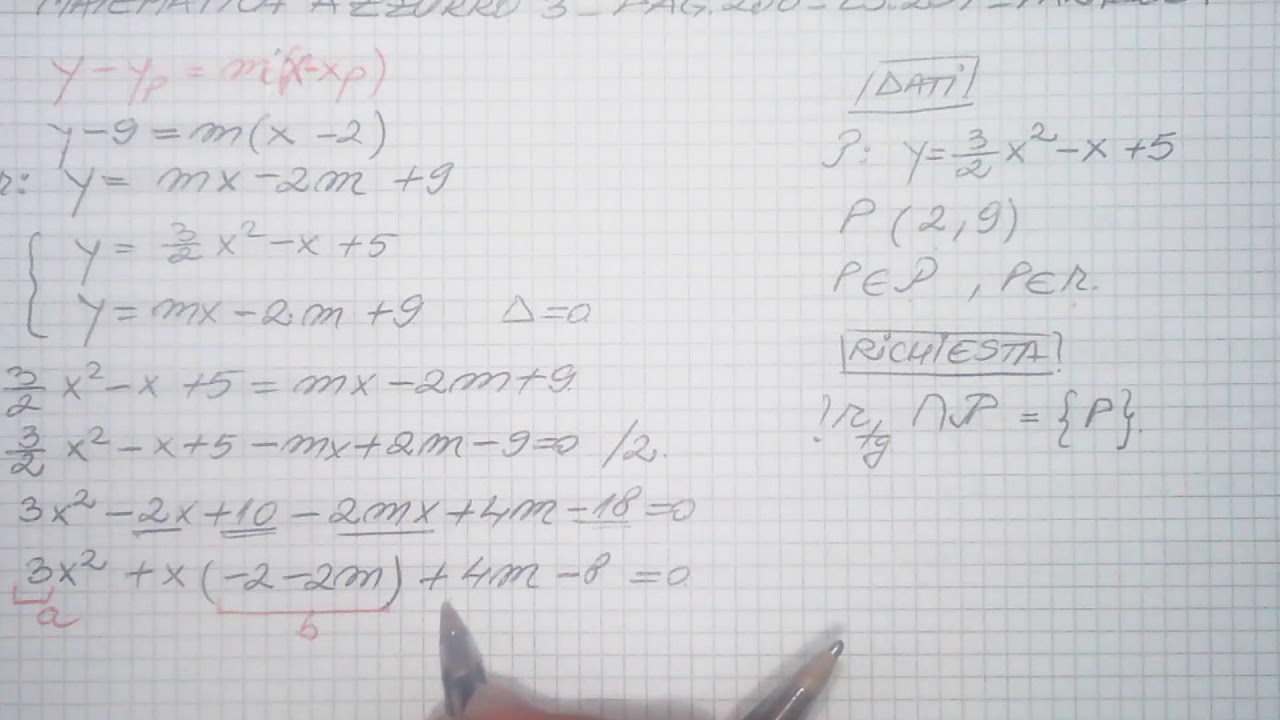 MATEMATICA AZZURRO 3 - PAG. 
y - yp = m(x - xp)
y - 9 = m(x - 2)
r: y = mx - 2m + 9
y = 3/2 x² - x + 5
y = mx - 2m + 9 Δ = 0
3/2 x² - x + 5 = mx - 2m + 9
3/2 x² - x + 5 - mx + 2m - 9 = 0 /2
3x² - 2x + 10 - 2mx + 4m - 18 = 0
3x² + x (-2 - 2m) + 4m - 8 = 0
a b
DATI
P: y = 3/2 x² - x + 5
P (2, 9)
P ∈ P, P ∈ r.
RICHIESTA
! r tg ∩ P = {P}.